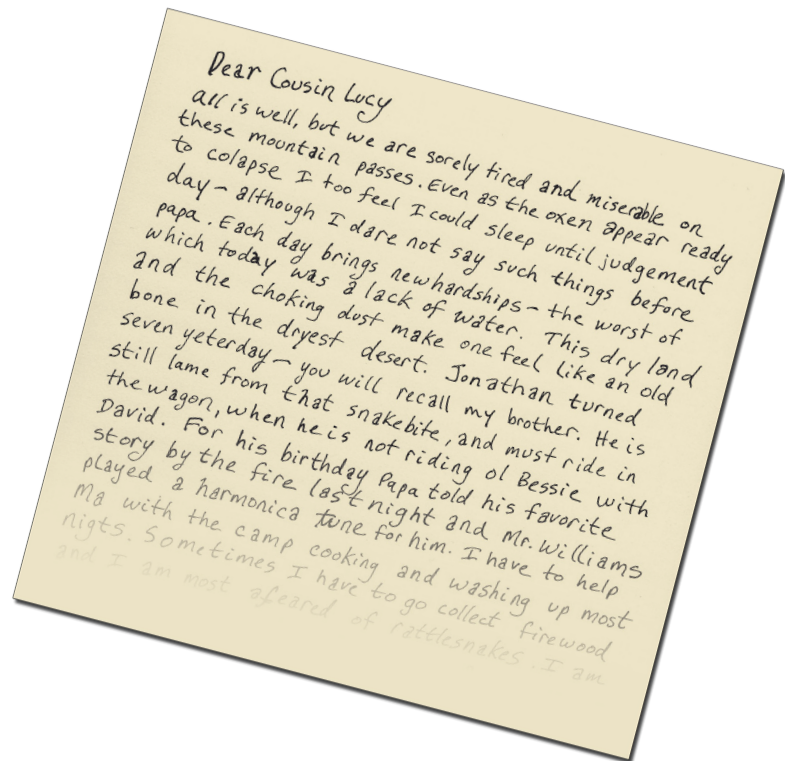 Dear Cousin Lucy
all is well, but we are sorely tired and miserable on
these mountain passes. Even as the oxen appear ready
to colapse I too feel I could sleep until judgement
day - although I dare not say such things before
papa. Each day brings new hardships - the worst of
which today was a lack of water. This dry land
and the choking dust make one feel like an old
bone in the dryest desert. Jonathan turned
seven yeterday - you will recall my brother. He is
still lame from that snakebite, and must ride in
the wagon, when he is not riding ol Bessie with
David. For his birthday Papa told his favorite
story by the fire last night and Mr. Williams
played a harmonica tune for him. I have to help
Ma with the camp cooking and washing up most
nigts. Sometimes I have to go collect firewood
and I am most afeared of rattlesnakes. I am